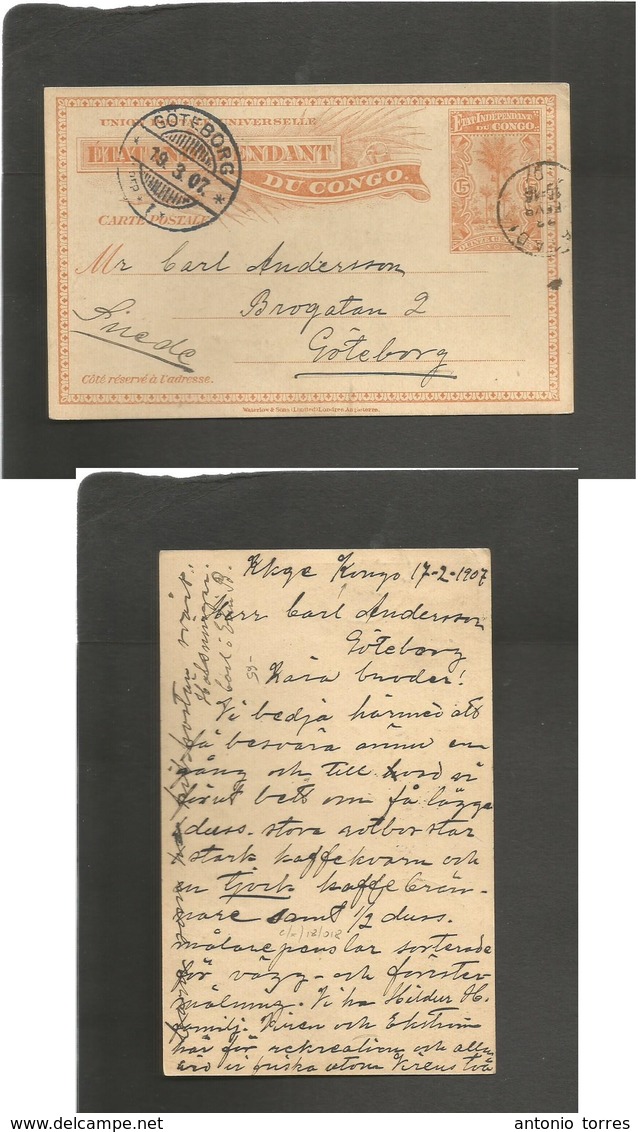 UNION POSTALE UNIVERSELLE
ÉTAT INDÉPENDANT
DU CONGO.
CARTE POSTALE
ÉTAT INDÉPENDANT
DU CONGO.
15
GÖTEBORG
19.3.07.
Mr Carl Andersson
Brogatan 2
Göteborg
Suede
Côté réservé à l'adresse.
Waterlow & Sons Limited, Londres, Angleterre.
Kongo 17-2-1907
Herr Carl Andersson
Göteborg
Kära broder!
Vi bedja härmed att
få besvära ännu en
gång och till hvad vi
förut bett om få lägga
duss. stora
stark kaffekvarn och
en kaffebrän-
nare samt 1/2 duss.
målarepenslar sorterade
för vägg- och fönster-
målning. Vi ha Hildur H.
familj. Viren och Ekström
här för rekreation och alla
äro vi friska utom Virens två